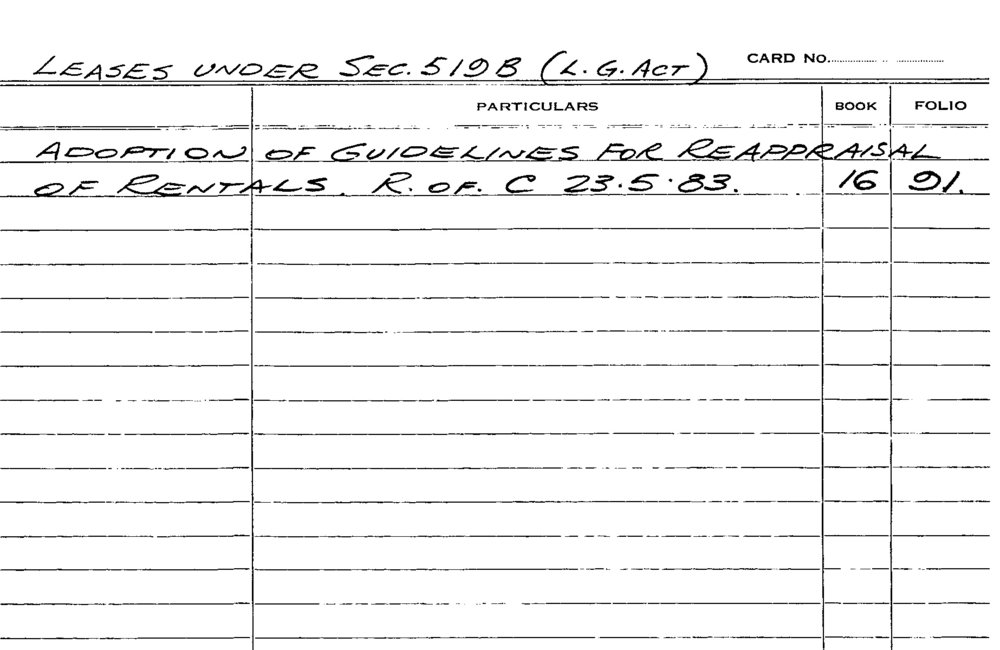 LEASES UNDER SEC. 519B (L.G. ACT) CARD NO.
PARTICULARS BOOK FOLIO
ADOPTION OF GUIDELINES FOR REAPPRAISAL
OF RENTALS. R. OF. C 23.5.83. 16 91.